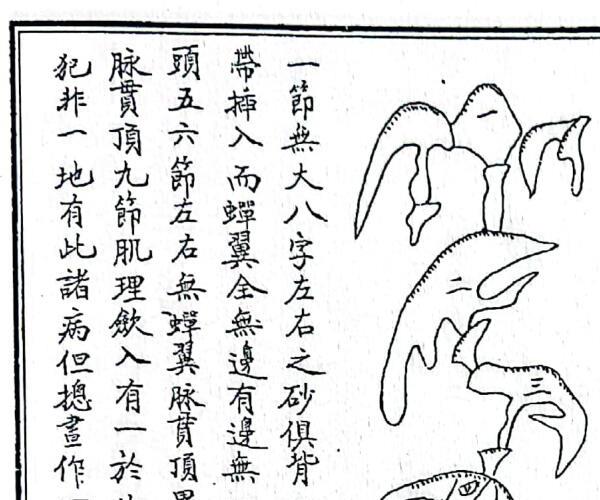 一節無大八字左右之砂俱背
帶揷入而蟬翼全無邊有邊無
頭五六節左右無蟬翼脉貫頂
脉貫頂九節肌理歛入有一於
犯非一地有此諸病但摠畫作
一
二
三
四